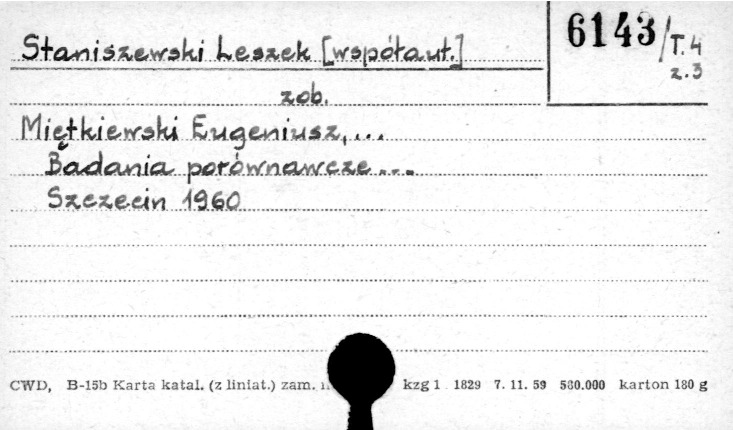 Staniszewski Leszek [współaut.]
6143/T.4
z.3
zob.
Miętkiewski Eugeniusz,...
Badania porównawcze...
Szczecin 1960
CWD, B-15b Karta katal. (z liniat.) zam. kzg 1 1829 7. 11. 59 500.000 karton 180 g